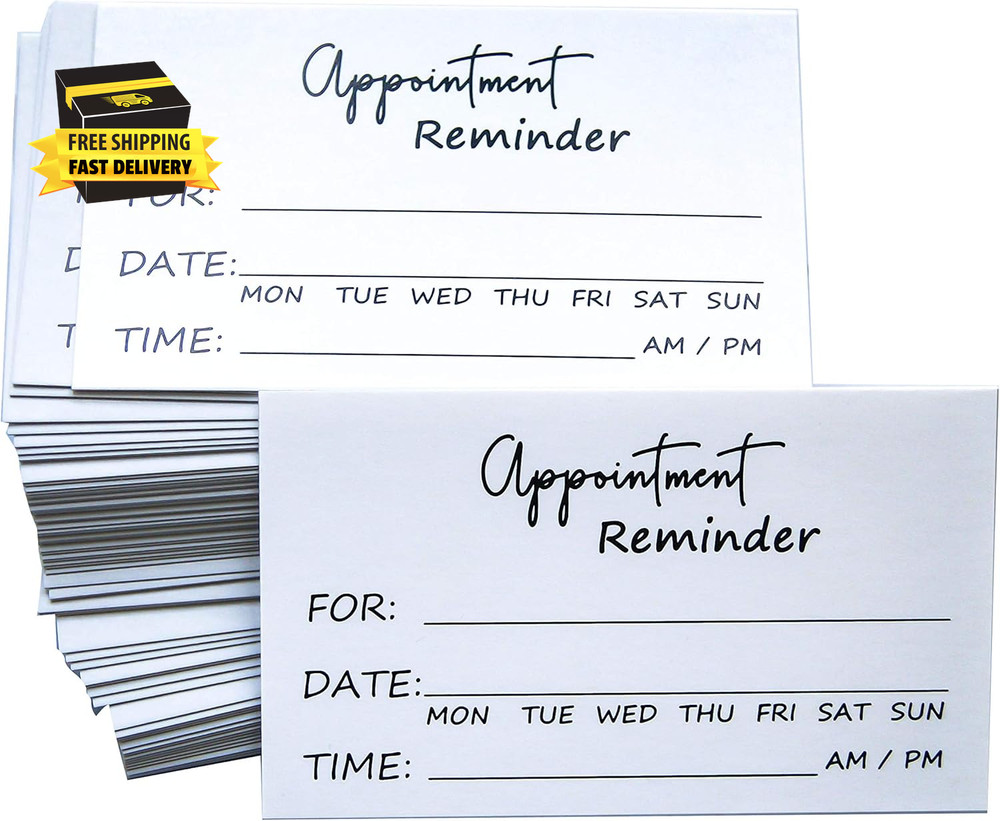 Appointment
Reminder
FREE SHIPPING
FAST DELIVERY
FOR:
DATE:
MON TUE WED THU FRI SAT SUN
TIME: AM / PM
Appointment
Reminder
FOR:
DATE:
MON TUE WED THU FRI SAT SUN
TIME: AM / PM